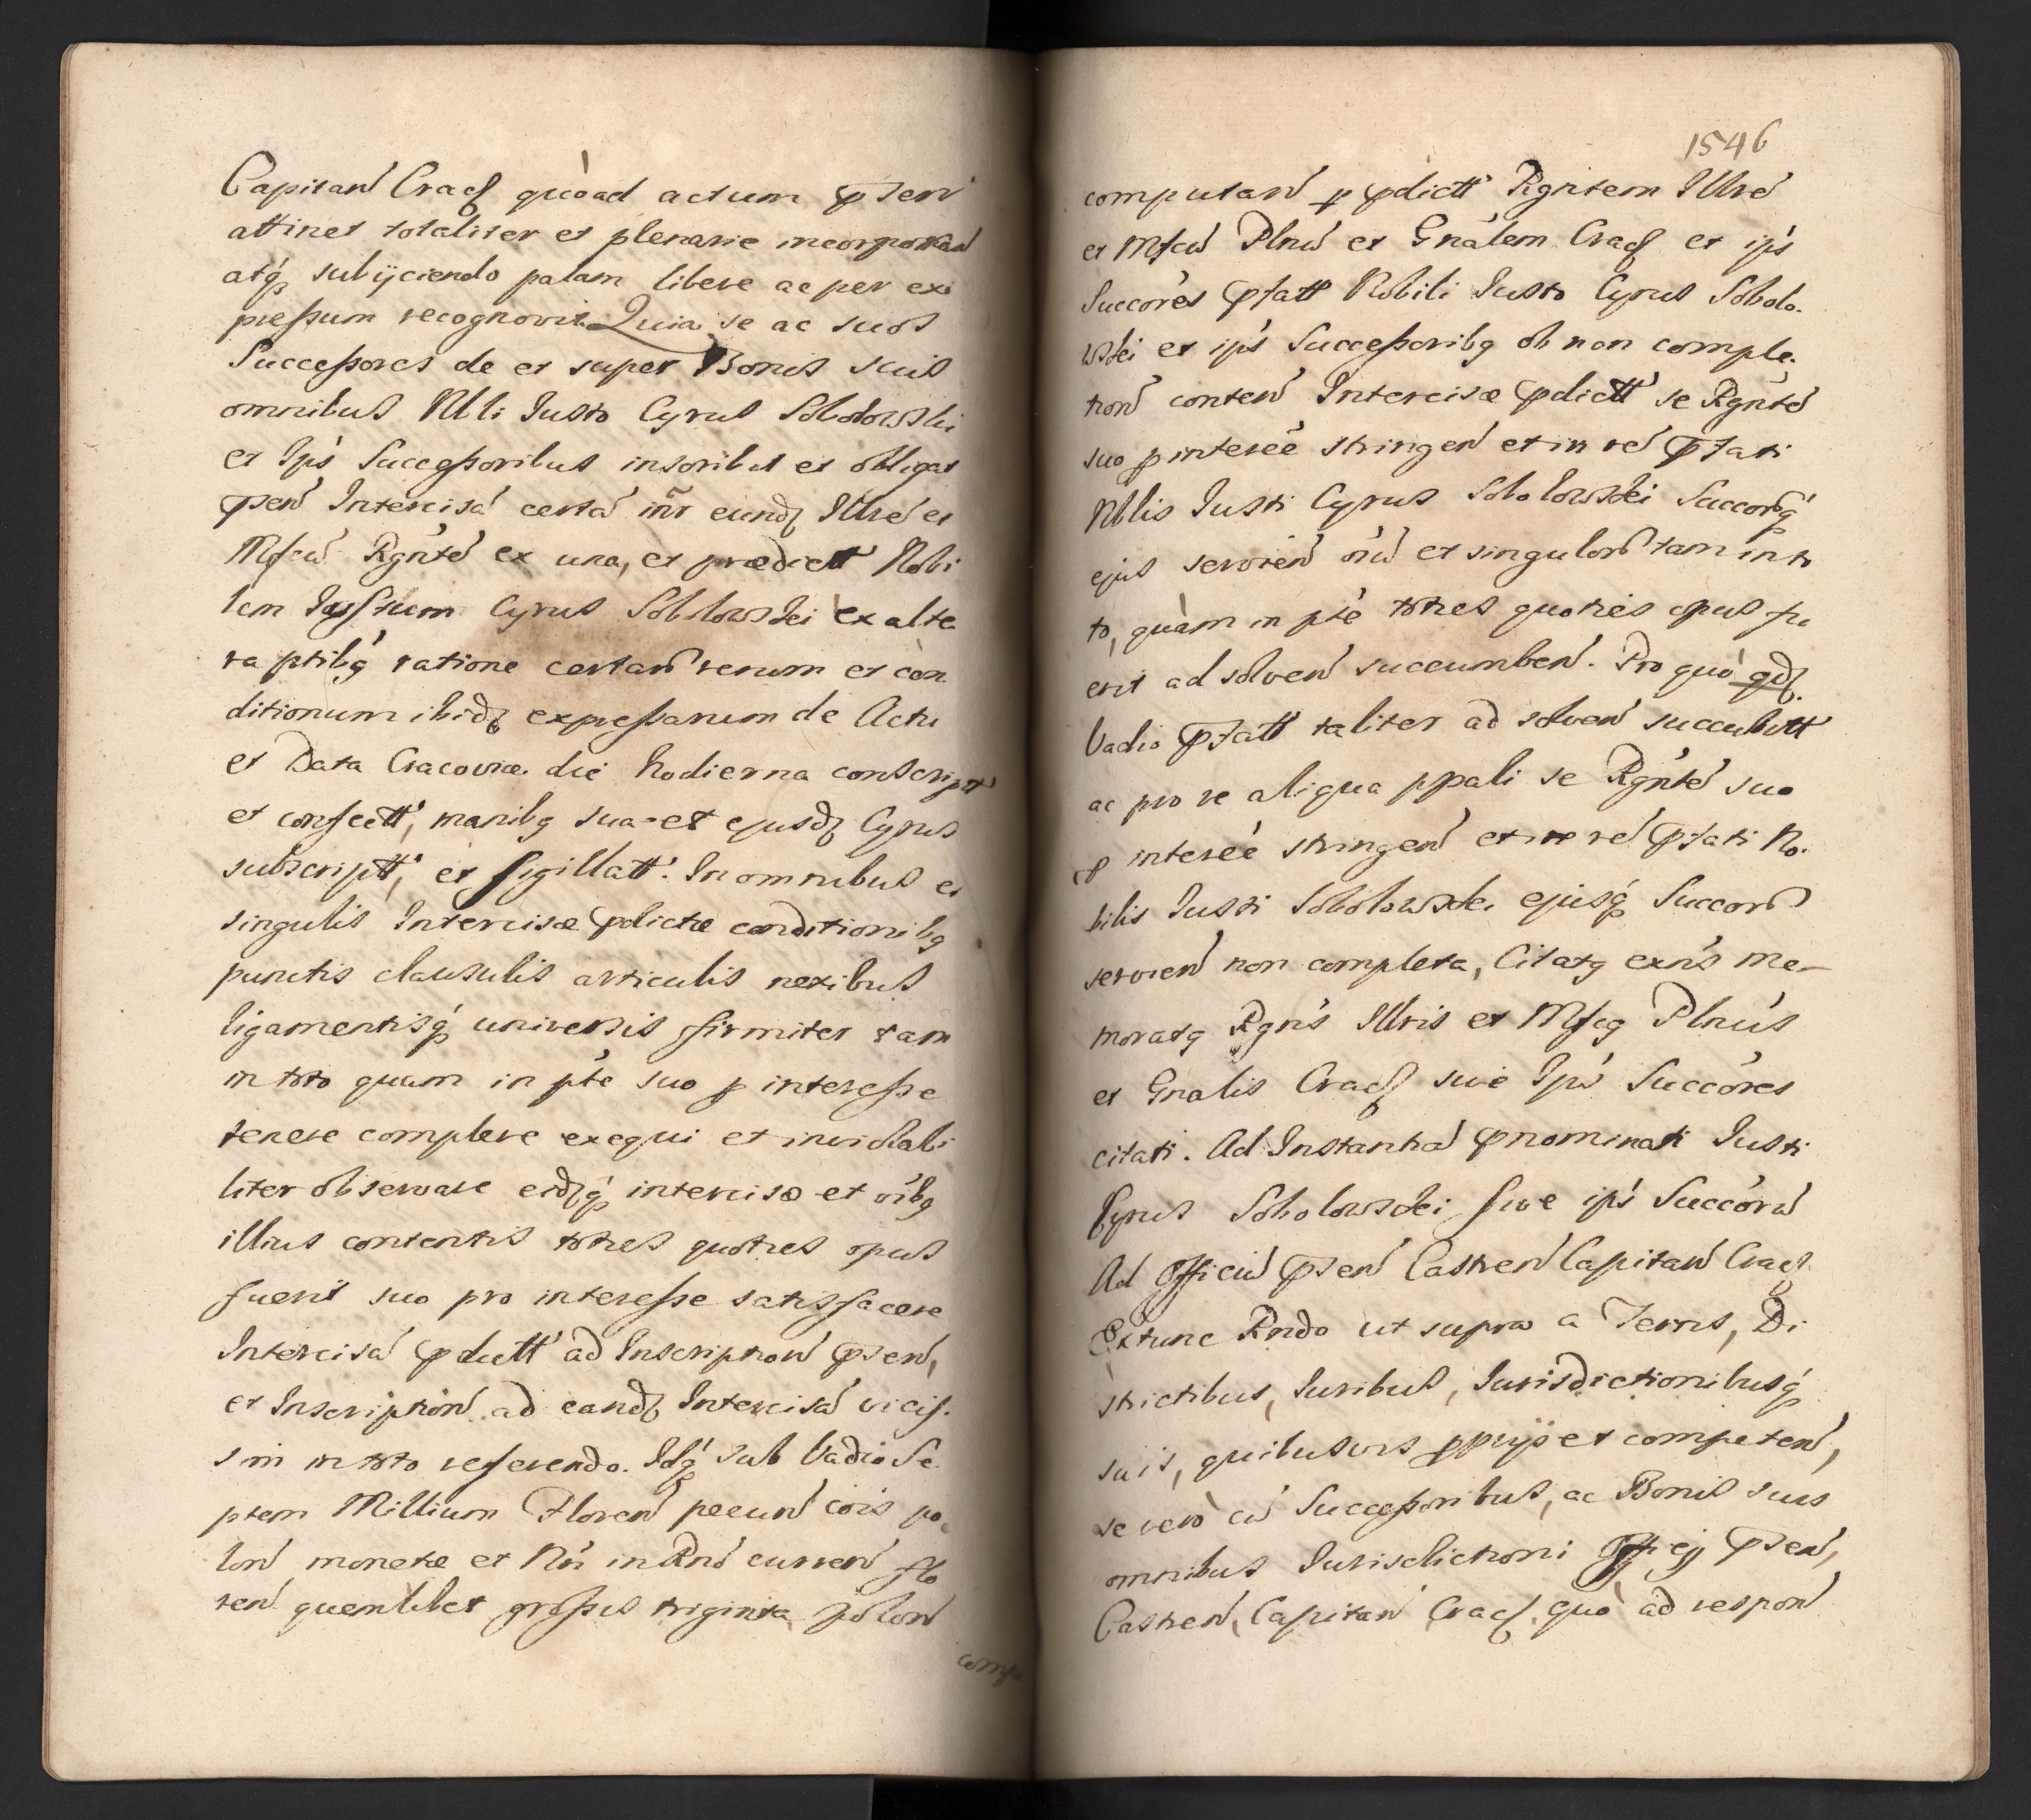 Capitan̄ Cracꝭ quoad actum p̄sen̄
attinet totaliter et plenarie incorporan̄
atq́ subijciendo palam libere ac per ex
pressum recognovit. Quia se ac suos
Successores de et super Bonis suis
omnibus Nbli Justo Cyrus Sobolowski
et Ips̄ Successoribus inscribit et obligat
p̄sen̄ Intercisā certā intr̄ eundꝭ Illrē et
Mfcū Rgn̄tē ex una, et prædictt̄ Nobi
lem Justum Cyrus Sobolowski ex alte
ra ptibq́ ratione certar̄ rerum et con
ditionum ibidꝭ expressarum de Actu
et Data Cracoviæ die hodierna conscript̄
et confectt̄, manibq sua et ejusdꝭ Cyrus
subscriptt̄, et sigillatt̄. In omnibus et
singulis Intercisæ p̄dictæ conditionibq
punctis clausulis articulis nexibus
ligamentisq́ universis firmiter tam
in toto quam in pt̄e suo p interesse
tenere complere exequi et inviolabi
liter observare eidꝭq́ intercisæ et oībq
illius contentis toties quoties opus
fuerit suo pro interesse satisfacere
Intercisā p̄dictt̄ ad Inscription̄ p̄sen̄,
et Inscription̄ ad eandꝭ Intercisā vicis.
sim in toto referendo. Idq́ sub Vadio Se
ptem Millium Floren̄ pecun̄ cōis po
lon̄ monetæ et Nri in Rnō curren̄ flo
ren̄ quemlibet grossis triginta polon̄
comp
1546
computan̄ p p̄dictt̄ Rgn̄tem Illrē
et Mfcū Plnū et Gnālem Cracꝭ et ips̄
Succōres p̄fatt̄ Nobili Justo Cyrus Sobolo.
wski et ips̄ Successoribq ob non comple.
tion̄ conten̄ Intercisæ p̄dictt̄ se Rgn̄tē
suo p interēe stringen̄ et in rē p̄fati
Nblis Justi Cyrus Sobolowski Succorq́
ejus servien̄ oīu et singulor̄ tam in to
to, quàm in pt̄e toties quoties opus fu
erit ad solven̄ succumben̄. Pro quo qdꝭ
Vadio p̄fatt̄ taliter ad solven̄ succubitt̄
ac pro re aliqua ppali se Rgn̄tē suo
p interēe stringen̄ et in rē p̄fati No.
bilis Justi Sobolowski ejusq́ Succor̄
servien̄ non completa, Citatq exn̄s me-
moratq Rgn̄s Illris et Mfcq Plnūs
et Gnalis Cracꝭ sive Ips̄ Succōres
citati. Ad Instantiā p̄nominati Justi
Cyrus Sobolowski sive ips̄ Succōrū
Ad Officiū p̄sen̄ Castren̄ Capitan̄ Cracꝭ
Extunc Rndō ut supra a Terris, Di
strictibus, Juribus, Jurisdictionibusq́
suis, quibusvis pprijs et competen̄,
se vero cū Successoribus, ac Bonis suis
omnibus Jurisdictioni Offcij p̄sen̄,
Castren̄, Capitan̄ Cracꝭ, quò ad respon̄